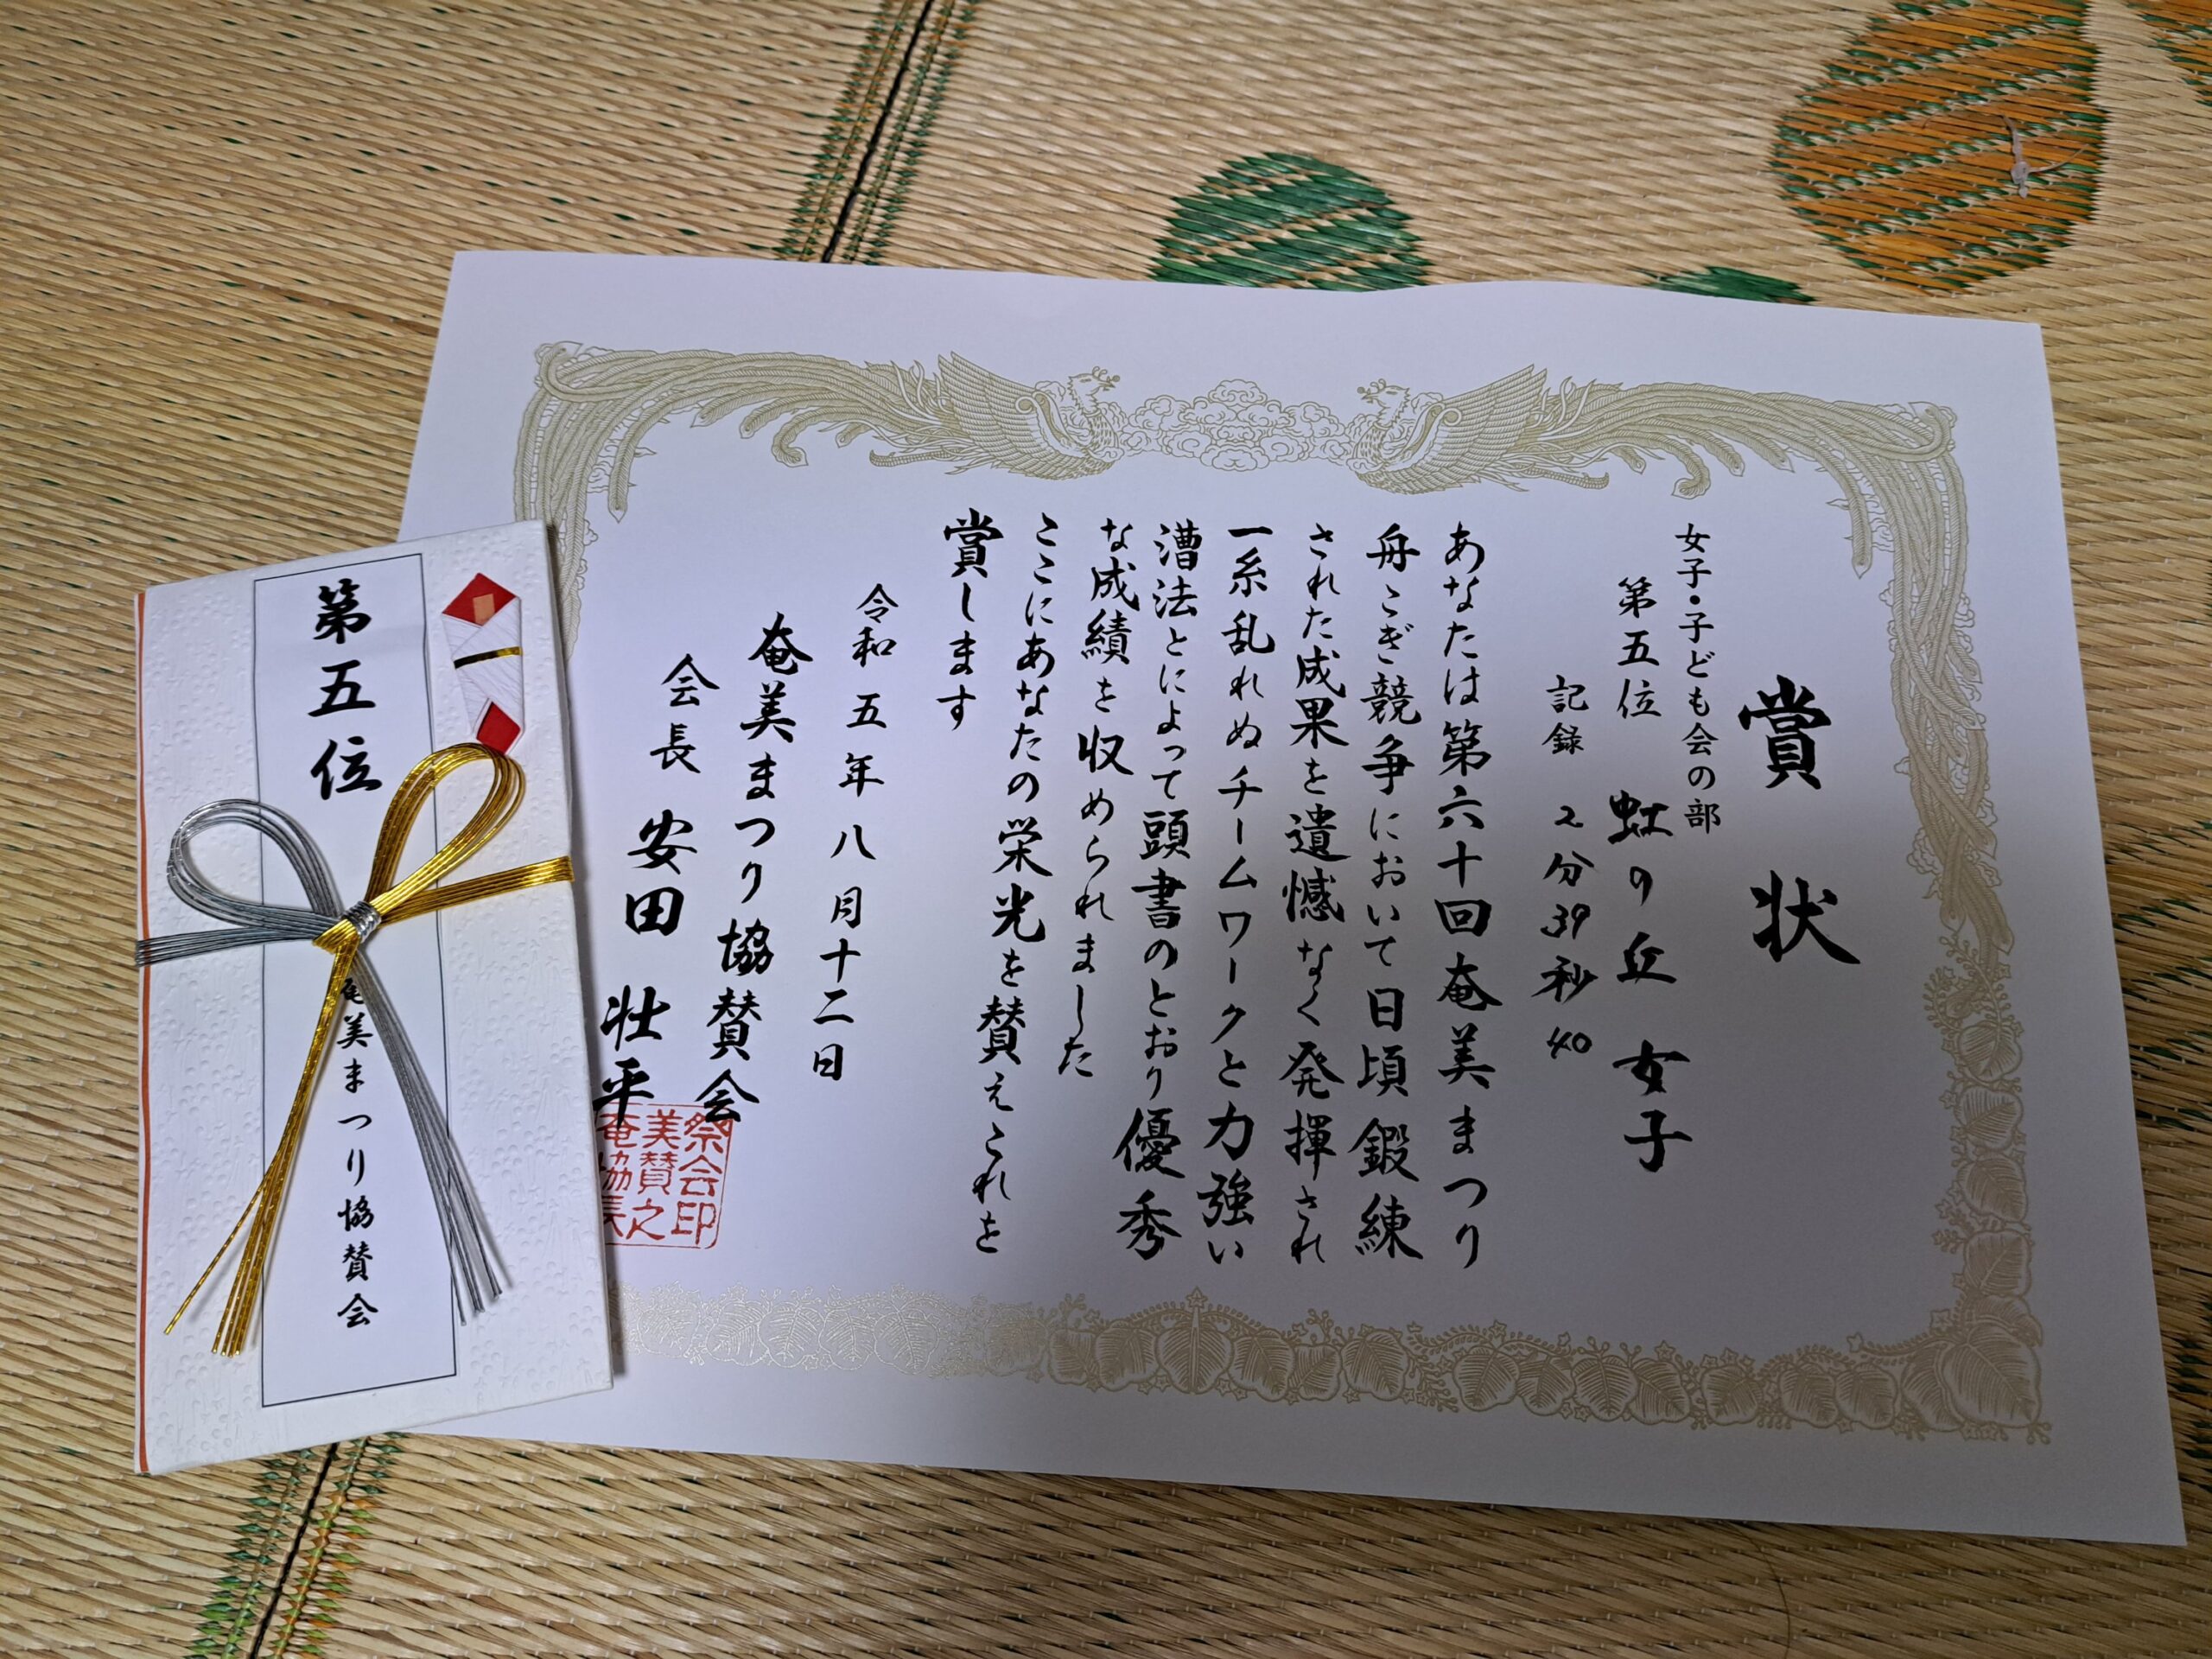 賞状
女子・子ども会の部
第五位 虹の丘女子
記録 2分39秒40
あなたは第六十回奄美まつり
舟こぎ競争において日頃鍛練
された成果を遺憾なく発揮され
一糸乱れぬチームワークと力強い
漕法とによって頭書のとおり優秀
な成績を収められました
ここにあなたの栄光を賛えこれを
賞します
令和五年八月十二日
奄美まつり協賛会
会長 安田壮平
祭会印
美賛之
奄協長
第五位
奄美まつり協賛会